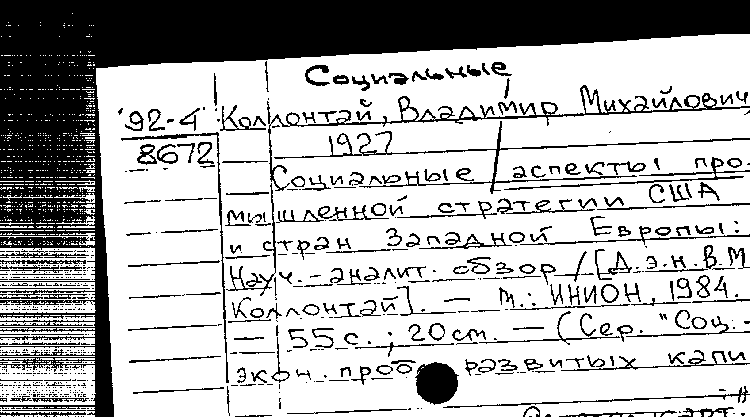 Социальные
'92-4' Коллонтай, Владимир Михайлович,
8672 1927
Социальные аспекты про-
мышленной стратегии США
и стран Западной Европы:
Науч.-аналит. обзор / [Д.э.н. В.М.
Коллонтай]. — М.: ИНИОН, 1984.
— 55 с.; 20 см. — (Сер. "Соц.-
экон. проб развитых капи